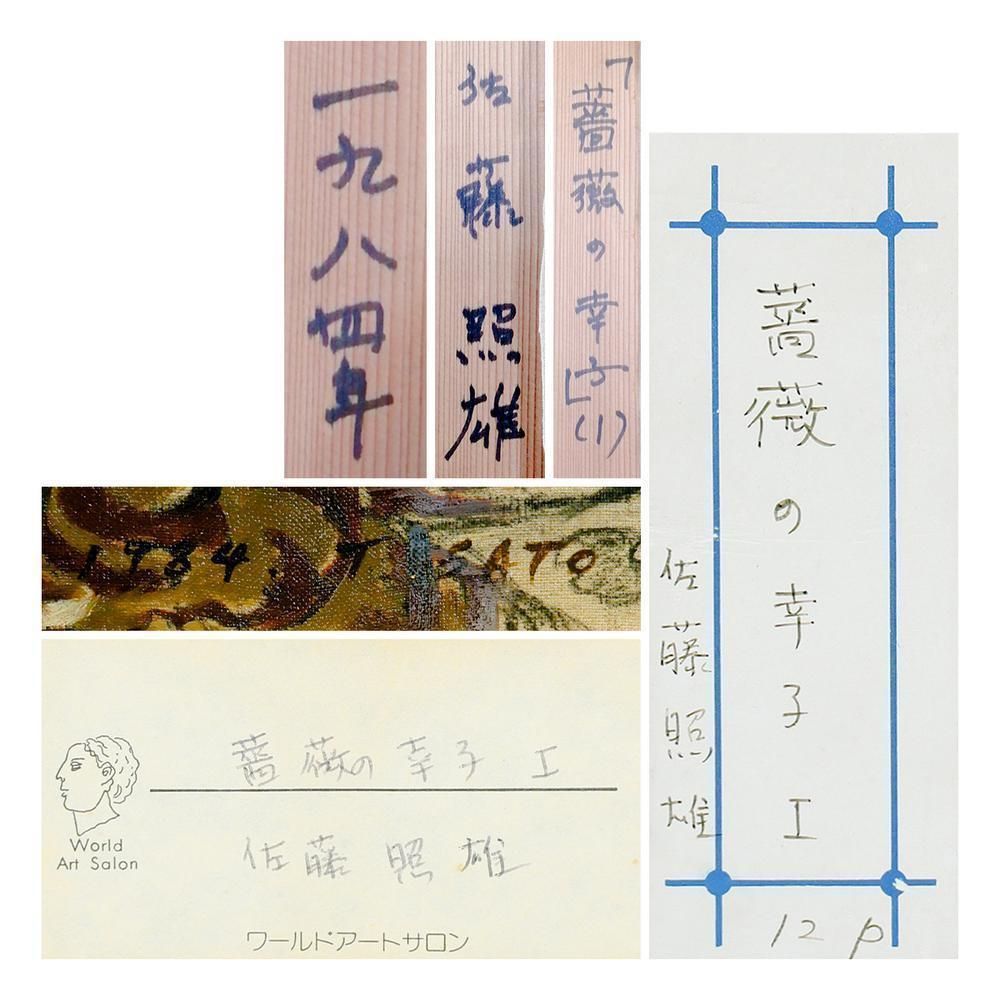 一九八四年
佐藤照雄
「薔薇の幸子」(1)
1984. T. SATO
薔薇の幸子 I
World
Art Salon
佐藤照雄
ワールドアートサロン
薔薇の幸子 I
佐藤照雄
12 P